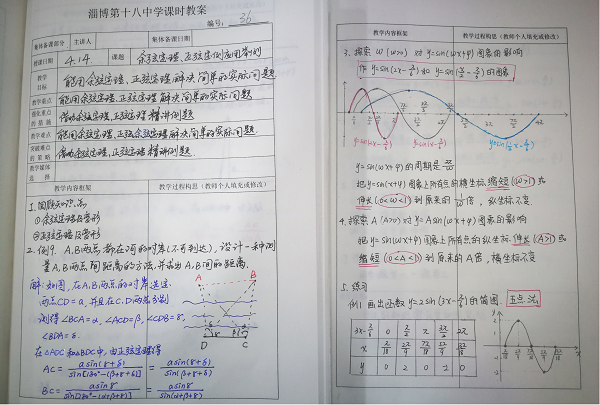 淄博第十八中学课时教案
编号: 36
集体备课部分 主讲人 集体备课日期
授课日期 4.14 课题 余弦定理、正弦定理应用举例
教学目标 能用余弦定理、正弦定理解决简单的实际问题
教学重点 能用余弦定理、正弦定理解决简单的实际问题
强化重点的策略 借助余弦定理、正弦定理精讲例题
教学难点 能用余弦定理、正弦定理解决简单的实际问题
突破难点的策略 借助余弦定理、正弦定理精讲例题.
教学媒体选择
教学内容框架 教学过程构思（教师个人填充或修改）
1. 回顾知识
①余弦定理及变形
②正弦定理及变形
2. 例9. A,B两点都在河的对岸(不可到达), 设计一种测
量A,B两点间距离的方法,并求出A,B间的距离.
解:如图,在A,B两点的对岸选定
两点CD=a,并且在C,D两点分别
测得∠BCA=α, ∠ACD=β, ∠CDB=γ,
∠BDA=δ.
在△ADC和△BDC中,由正弦定理得
AC = a sin(γ+δ) / sin[180°-(β+γ+δ)] = a sin(γ+δ) / sin(β+γ+δ)
BC = a sinγ / sin[180°-(α+β+γ)] = a sinγ / sin(α+β+γ)
A B
D C
教学内容框架 教学过程构思（教师个人填充或修改）
3. 探索 ω(ω>0) 对 y=sin(ωx+φ) 图象的影响
y=sin(ωx+φ)的周期是 2π/ω
把y=sin(x+φ)图象上所有点的横坐标 缩短(ω>1)或
伸长(0<ω<1)到原来的 1/ω 倍, 纵坐标不变
4. 探索 A(A>0)对 y=Asin(ωx+φ)图象的影响
把y=sin(ωx+φ)图象上所有点的纵坐标 伸长(A>1)或
缩短(0<A<1)到原来的A倍,横坐标不变
5. 练习
例1 画出函数 y=2sin(3x-π/6)的简图. 五点法
3x-π/6 0 π/2 π 3π/2 2π
y 0 2 0